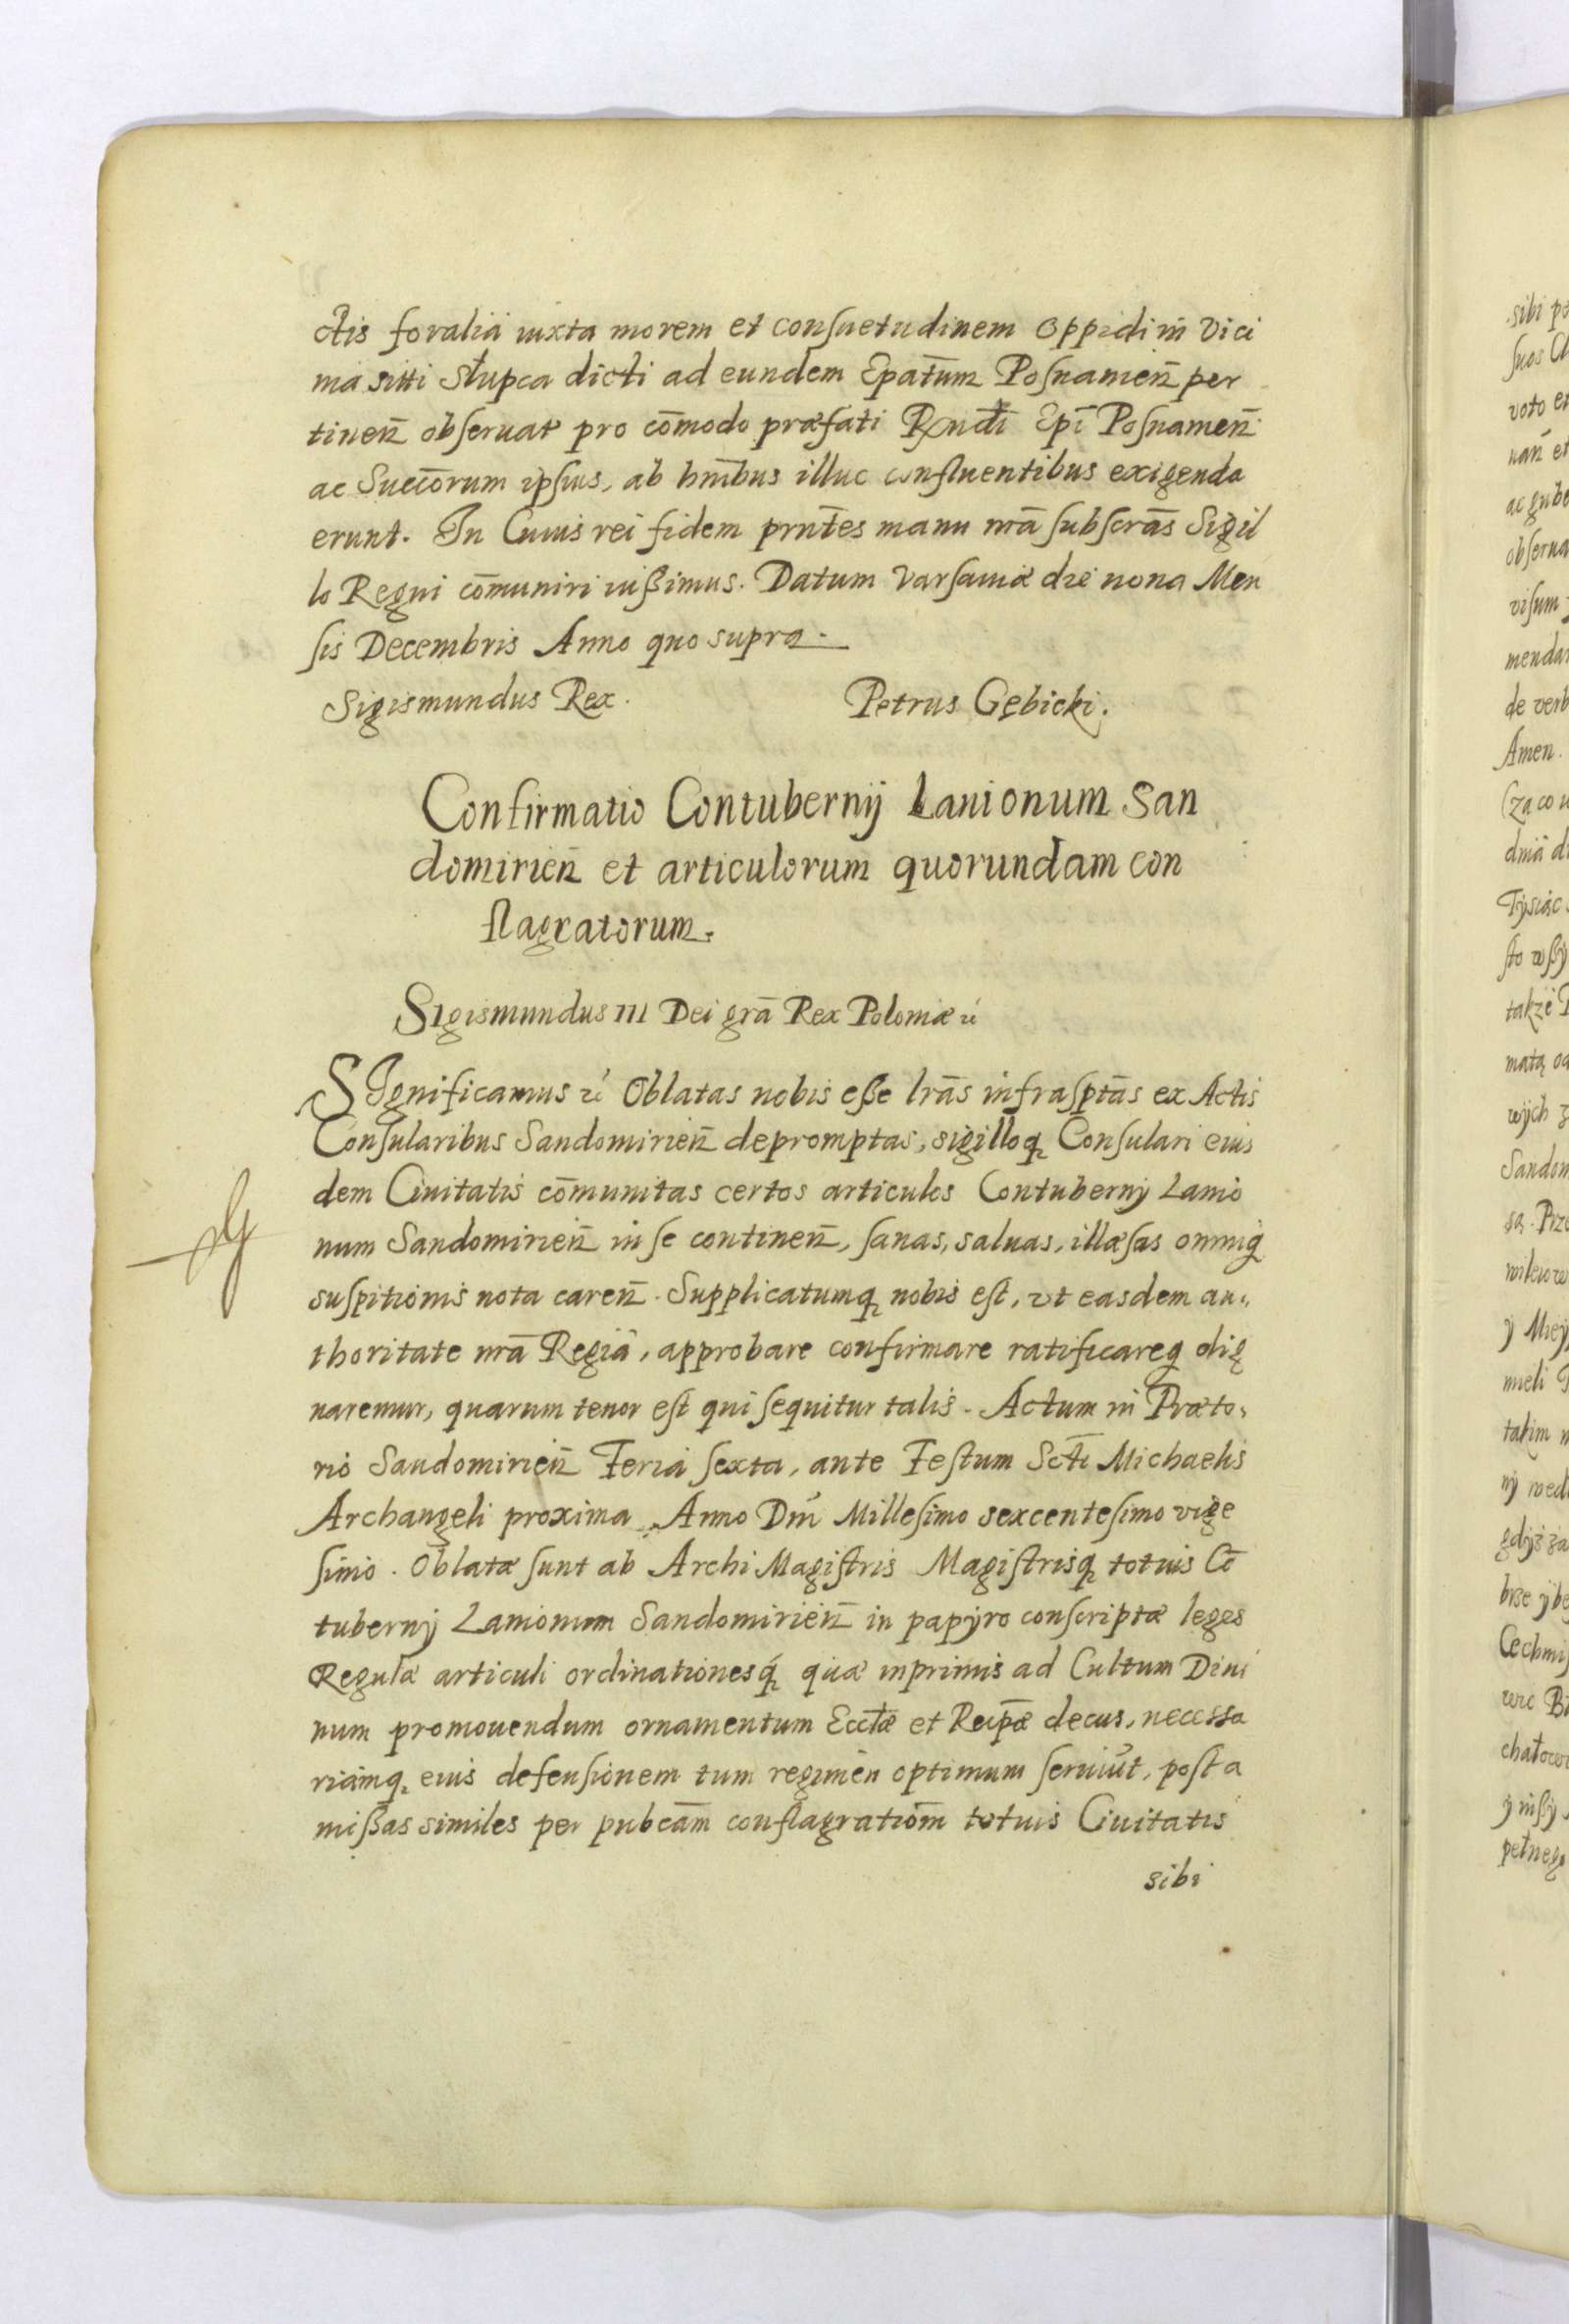 ctis foralia iuxta morem et consuetudinem oppidi in vici
ma sitti Słupca dicti ad eundem Epatum Posnamen̄ per
tinen̄ obseruat pro cōmodo præfati Rndi Epī Posnamen̄
ac Succorum ipsius, ab hnībus illuc confluentibus exigenda
erunt. In Cuius rei fidem prntes manu nrā subscrās Sigil
lo Regni cōmuniri iußimus. Datum Varsauiæ die nona Men
sis Decembris Anno quo supra.
Sigismundus Rex. Petrus Gębicki.
Confirmatio Contubernij Lanionum San
domirien̄ et articulorum quorundam con
flagratorum.
Sigismundus III Dei grā Rex Poloniæ
SIgnificamus Oblatas nobis eße lrās infrasptās ex Actis
Consularibus Sandomirien̄ depromptas, sigilloq Consulari eius
dem Ciuitatis cōmunitas certos articulos Contubernij Lanio
num Sandomirien̄ in se continen̄, sanas, saluas, illæsas omniq
suspitionis nota caren̄. Supplicatumq nobis est, vt easdem au,,
thoritate nrā Regiâ, approbare confirmare ratificareq dig
naremur, quarum tenor est qui sequitur talis. Actum in Præto,
rio Sandomirien̄ Feria sexta, ante Festum Scti Michaelis
Archangeli proxima Anno Dni Millesimo sexcentesimo vige
simo. Oblatæ sunt ab Archi Magistris Magistrisq totius Cō
tubernij Lanionum Sandomirien̄ in papyro conscriptæ leges
Regulæ articuli ordinationesq quæ inprimis ad Cultum Diui
num promouendum ornamentum Eccłæ et Reipæ decus, necessa
riamq eius defensionem tum regimen optimum seruiūt, post a
mißas similes per pubcām conflagratiōm totius Ciuitatis
sibi